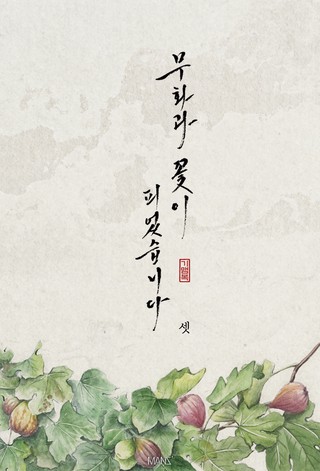 무화과 꽃이
피었습니다
셋
MANS